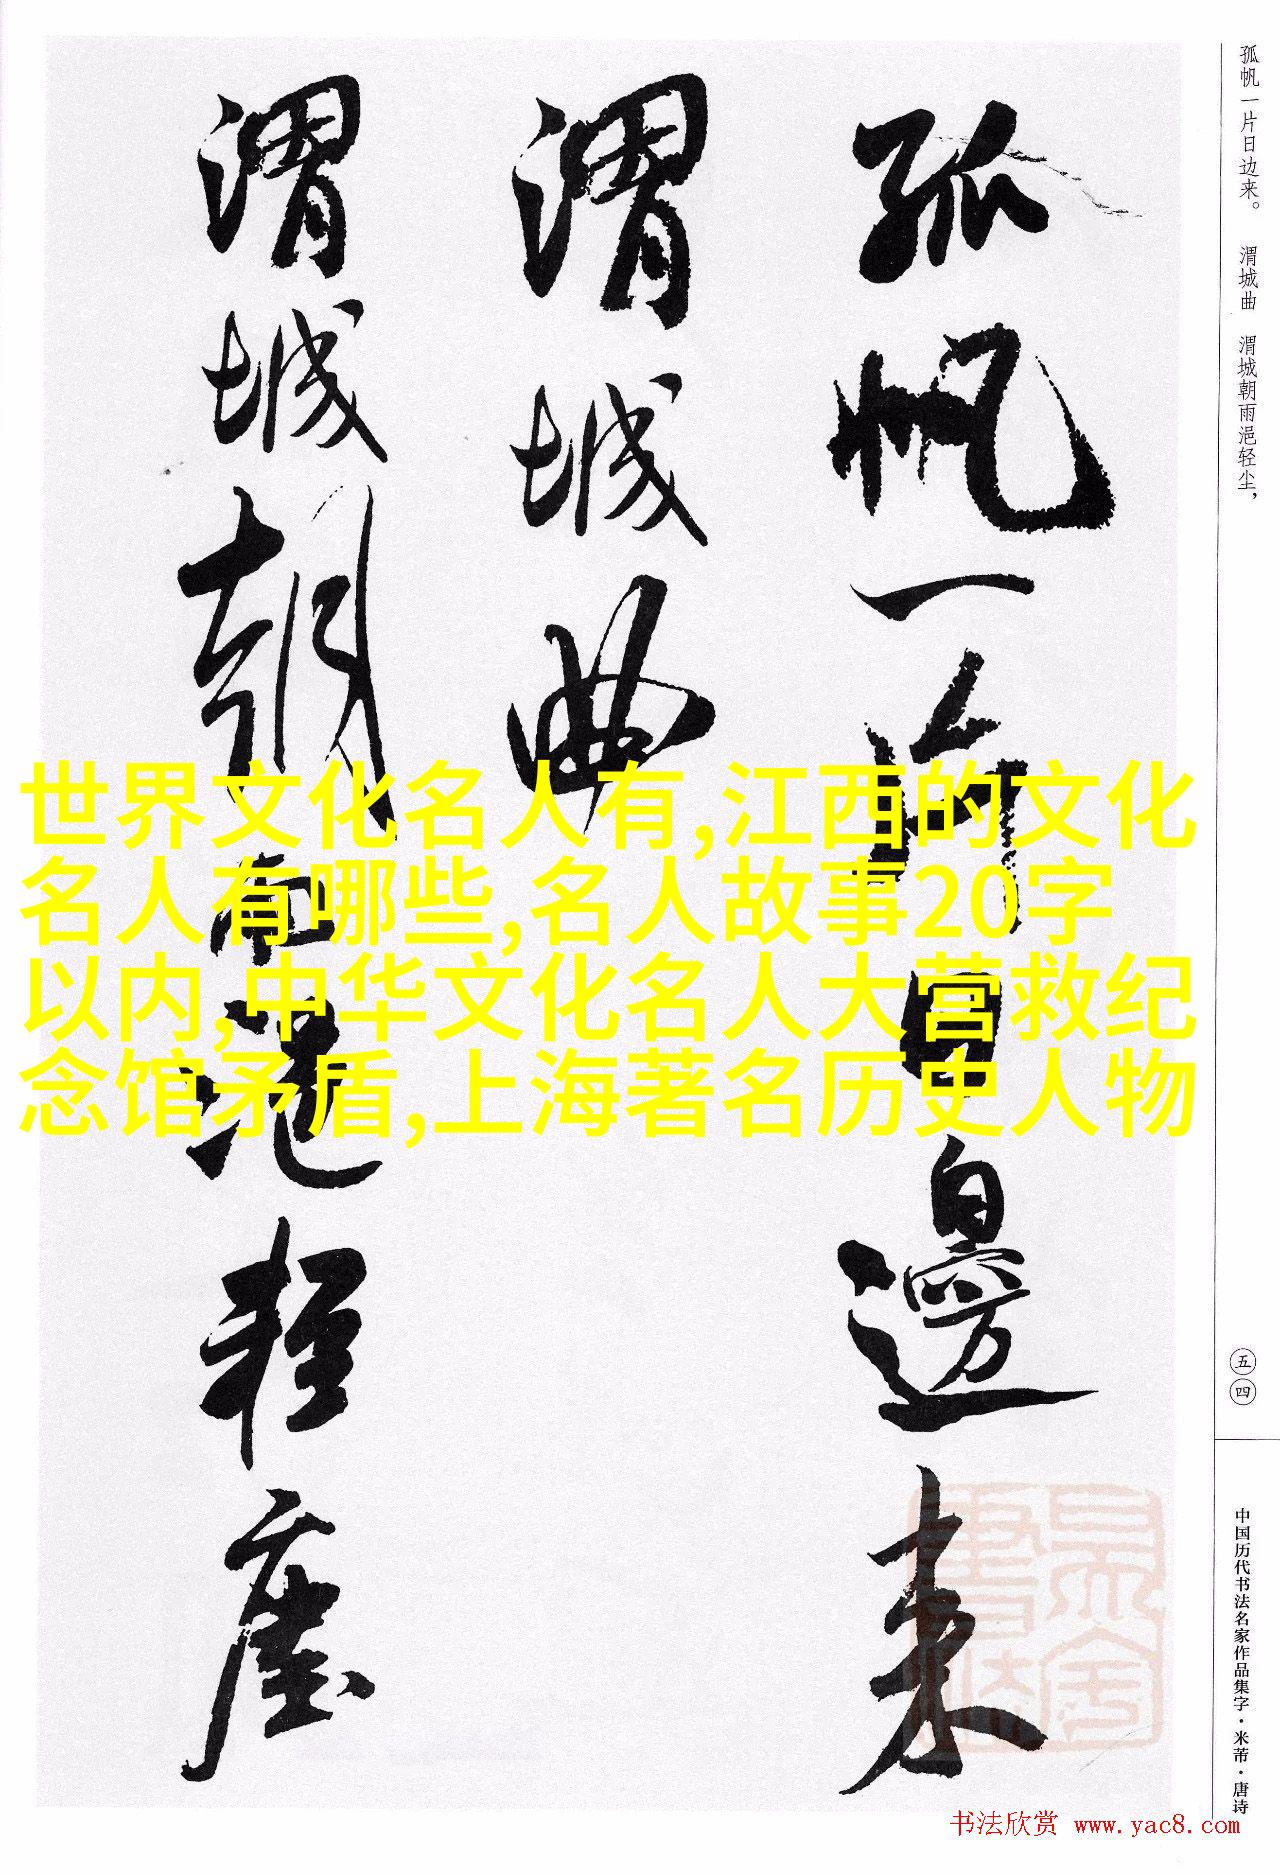 孤帆一片日边来。 渭城曲 渭城朝雨浥轻尘，
孤帆一片日邊来
渭城曲
渭城朝雨浥轻塵
世界文化名人有,江西的文化
名人有哪些,名人故事20字
以内,中华文化名人大营救纪
念馆矛盾,上海著名历史人物
五四
中国历代书法名家作品集字·米芾·唐诗
书法欣赏 www.yac8.com